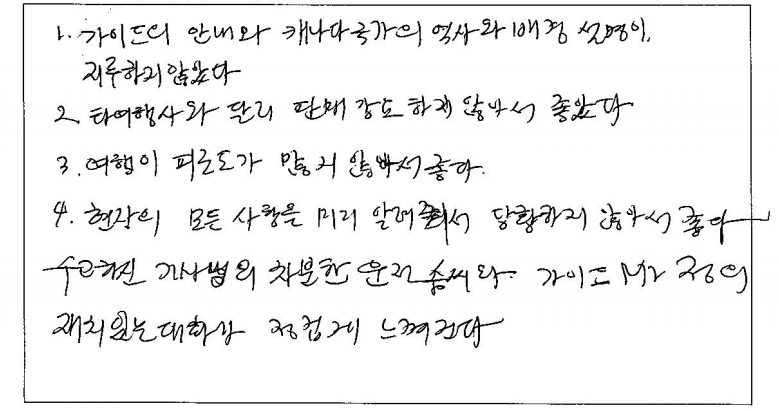 1. 가이드의 안내와 캐나다국가의 역사와 배경 설명이,
지루하지않았다
2. 타여행사와 달리 판매 강요하게 않아서 좋았다
3. 여행이 피로도가 많지 않아서좋다.
4. 현장의 모든 사항을 미리 알려줘서 당황하지 않아서 좋다
수고하신 기사님의 차분한 운전 솜씨와 가이드 Mr 정의
재치있는대화가 정겹게 느껴진다